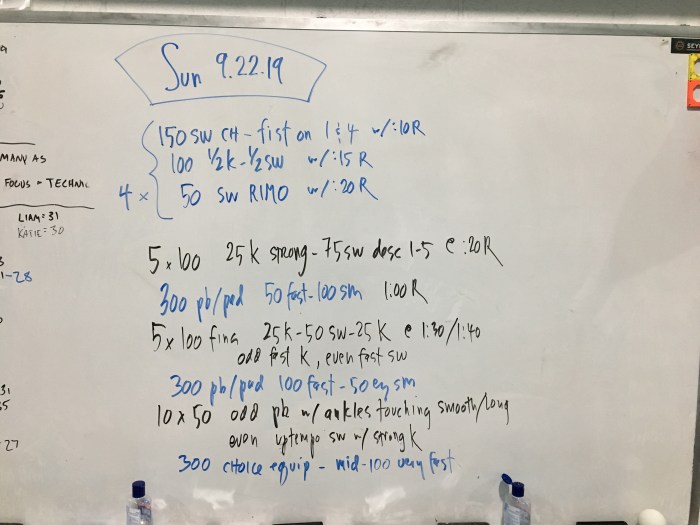 Sun 9.22.19
150 SW CH - fist on 1 & 4 w/ :10 R
100 1/2 K - 1/2 SW w/ :15 R
4 x 50 SW RIMO w/ :20 R
5 x 100 25 K strong - 75 SW desc 1-5 @ :20 R
300 pb/pad 50 fast - 100 sm 1:00 R
5 x 100 fins 25 K - 50 SW - 25 K @ 1:30/1:40
odd fast K, even fast SW
300 pb/pad 100 fast - 50 ez sm
10 x 50 odd pb w/ ankles touching smooth/long
even uptempo SW w/ strong K
300 choice equip - mid-100 very fast
MANY AS
FOCUS -
LIAM = 31
KATIE = 30
1-28
27